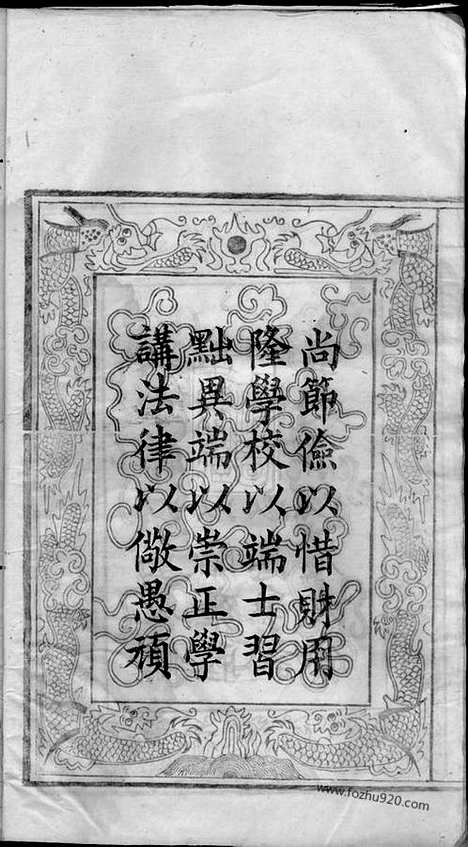 尚節儉以惜財用
隆學校以端士習
黜異端以崇正學
講法律以儆愚頑
www.fozhu920.com